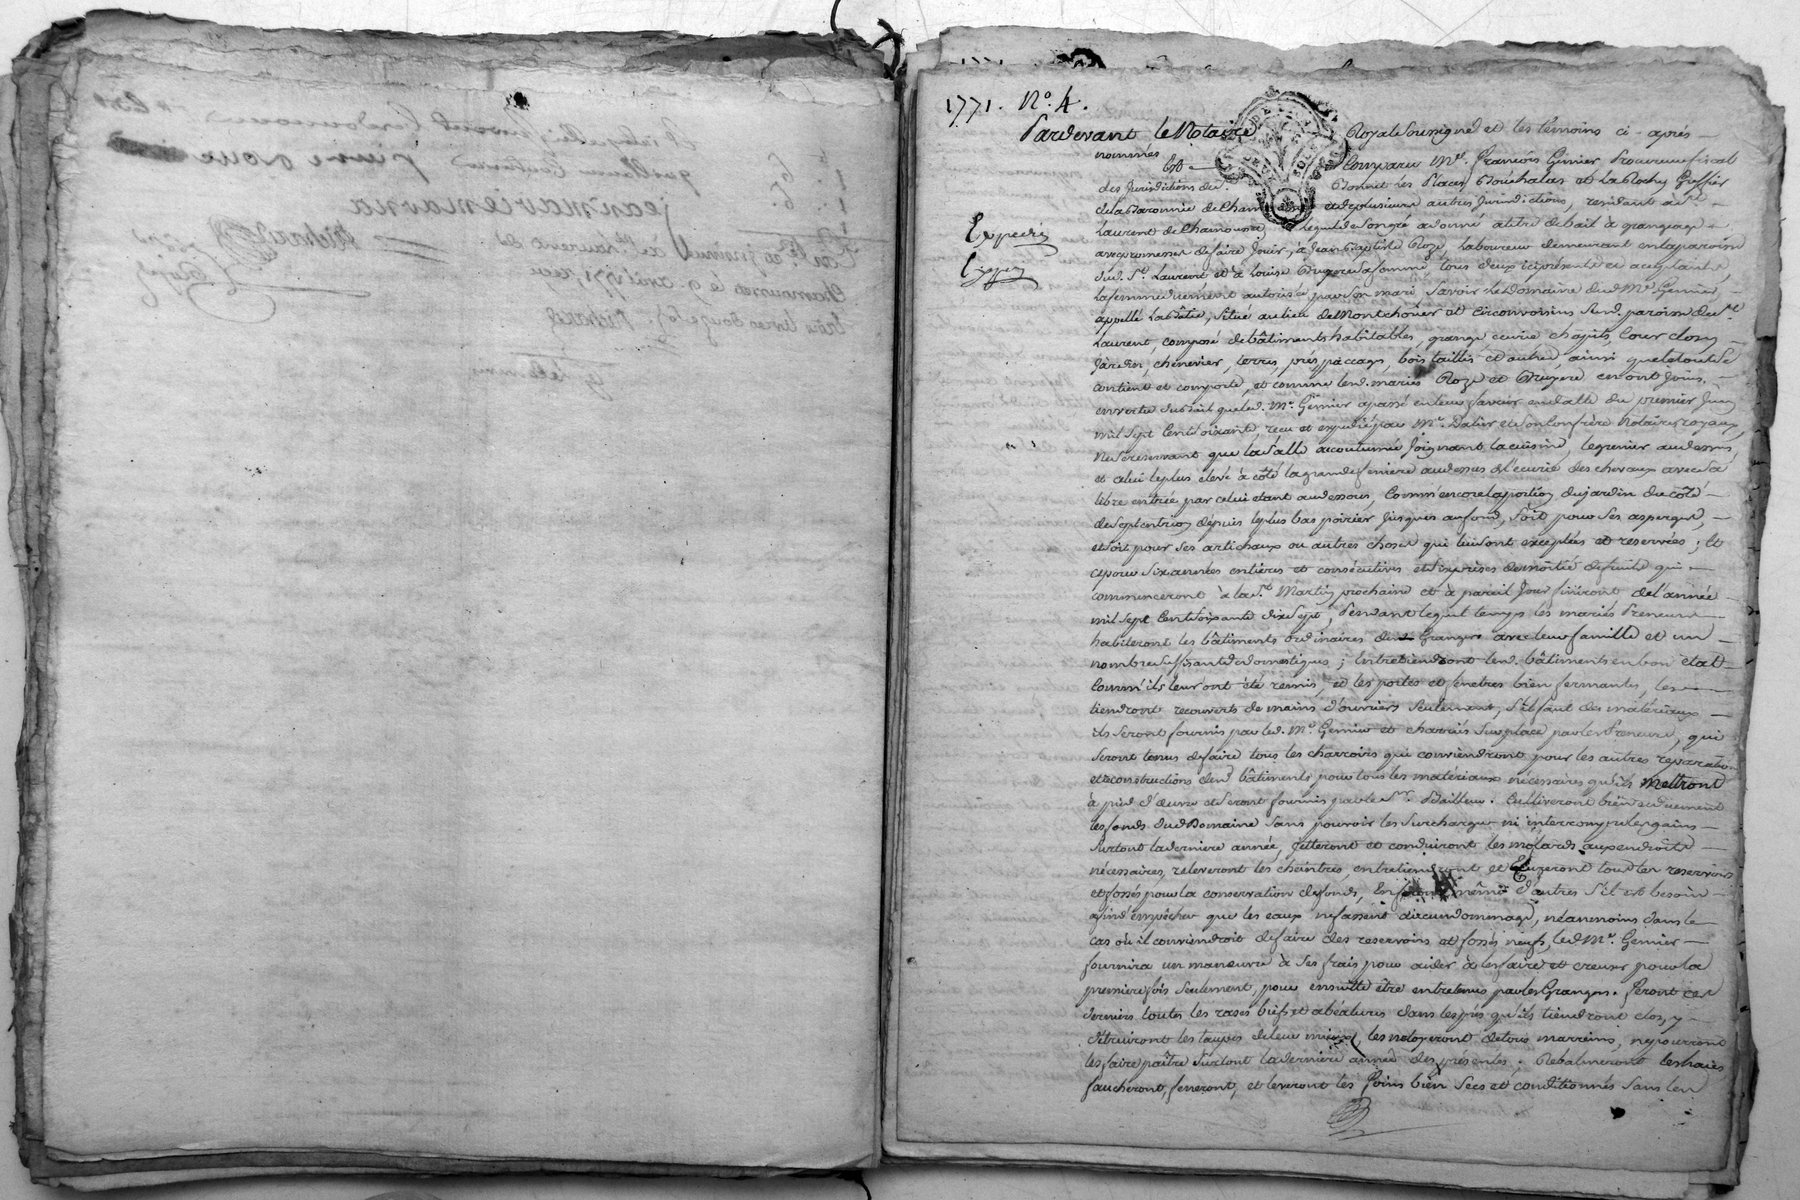 1771. No. 4.
Pardevant le Notaire Royal Soussigné et les témoins ci-après
nommés
Est Comparu Me. François Génier Procureur fiscal
des Jurisdictions du Bonnet les Places, Bouchalas et la Roche, Greffier
de la Baronnie de Cham et de plusieurs autres Jurisdictions, residant à St.
Laurent de Chamousset, Lequel de Son gré a donné à titre de bail à grangeage
avec promesse de faire Jouir, à Jean Baptiste Roze, Laboureur demeurant en la paroisse
dud. St. Laurent, et à Louise Bruyere Sa femme, tous deux ici présents et aceptants,
la femme duement autorisée par son mari Savoir le Domaine dud. Me. Génier,
appellé la Bâtie, Situé au lieu de Montchonier et circonvoisins Sud. paroisse de St.
Laurent, composé de bâtiments habitables, grange écurie chapits, Cour clos,
Jardin, chenevier, terres, prés, pacages, bois taillis et autres, ainsi que le tout Se
contient et comporte, et comme lesd. mariés Roze et Bruyere en ont Joui,
en vertu du bail que led. Me. Génier a passé en leur faveur en datte du premier Juin
mil Sept Cent Soixante, recu et expedié par Me. Dalier et Son Confrère Notaires royaux,
Ne Se réservant que la Salle accoutumée Joignant la cuisine, le grenier au dessus,
et celui le plus élevé à côté la grande feniere au dessus de l'écurie des chevaux avec Sa
libre entrée par celui étant au dessous, Comm' encore la portion du jardin du côté
de Septentrion depuis le plus bas poirier Jusques au fond, Soit pour Ses asperges,
et Soit pour Ses artichaux ou autres choses qui lui Sont exceptées et reservées; Et
ce pour Six années entières et consécutives et Six prises de moitié de fruits qui
commenceront à la St. Martin prochaine et à pareil Jour finiront de l'année
mil Sept Cent Soixante dix Sept, Pendant lequel temps les mariés Preneurs
habiteront les bâtiments ordinaires du Granger avec leur famille et un
nombre Suffisant de domestiques; Entretiendront lesd. bâtiments en bon état
Comm' ils leur ont été remis, et les portes et fenetres bien fermantes, les
tiendront recouverts de mains d'ouvriers Seulement, S'il faut des matériaux
ils Seront fournis par led. Me. Génier et chariés Sur place par les Preneurs, qui
Seront tenus de faire tous les charrois qui conviendront pour les autres réparations
et reconstructions desd. bâtiments pour tous les matériaux nécessaires qu'ils mettront
à pied d'œuvre et Seront fournis par le Sr. Bailleur. Cultiveront bien et duement
les fonds dud. Domaine Sans pouvoir les Surcharger ni interrompre les gains
Surtout la derniere année, Jetteront et conduiront les mólards aux endroits
nécessaires, releveront les cheintres, entretiendront et Curezeront tous les reservoirs
et fossés pour la conservation des fonds, En feront même d'autres S'il est besoin
afin d'empêcher que les eaux ne fassent aucun dommage, néanmoins dans le
cas où il conviendroit de faire des reservoirs et fossés neufs, led. Me. Génier
fournira un manœuvre à Ses frais pour aider à les faire et creuser pour la
premiere fois Seulement, pour ensuitte être entretenus par les Grangers. Feront ces
derniers toutes les rases biefs et abéalures dans les prés qu'ils tiendront clos, y
détruiront les taupes de leur mieux, les netoyeront de tous marreins, ne pourront
les faire paître Surtout la derniere année des présentes; Rebalmeront les haies,
faucheront, feneront, et leveront les foins bien Secs et conditionnés Sans les
Expedié
Exped